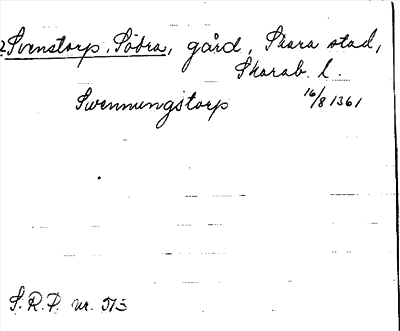 2 Svenstorp, Södra, gård, Skara stad,
Skarab. l.
Swennungstorp 16/8 1361
S.R.P. nr. 513